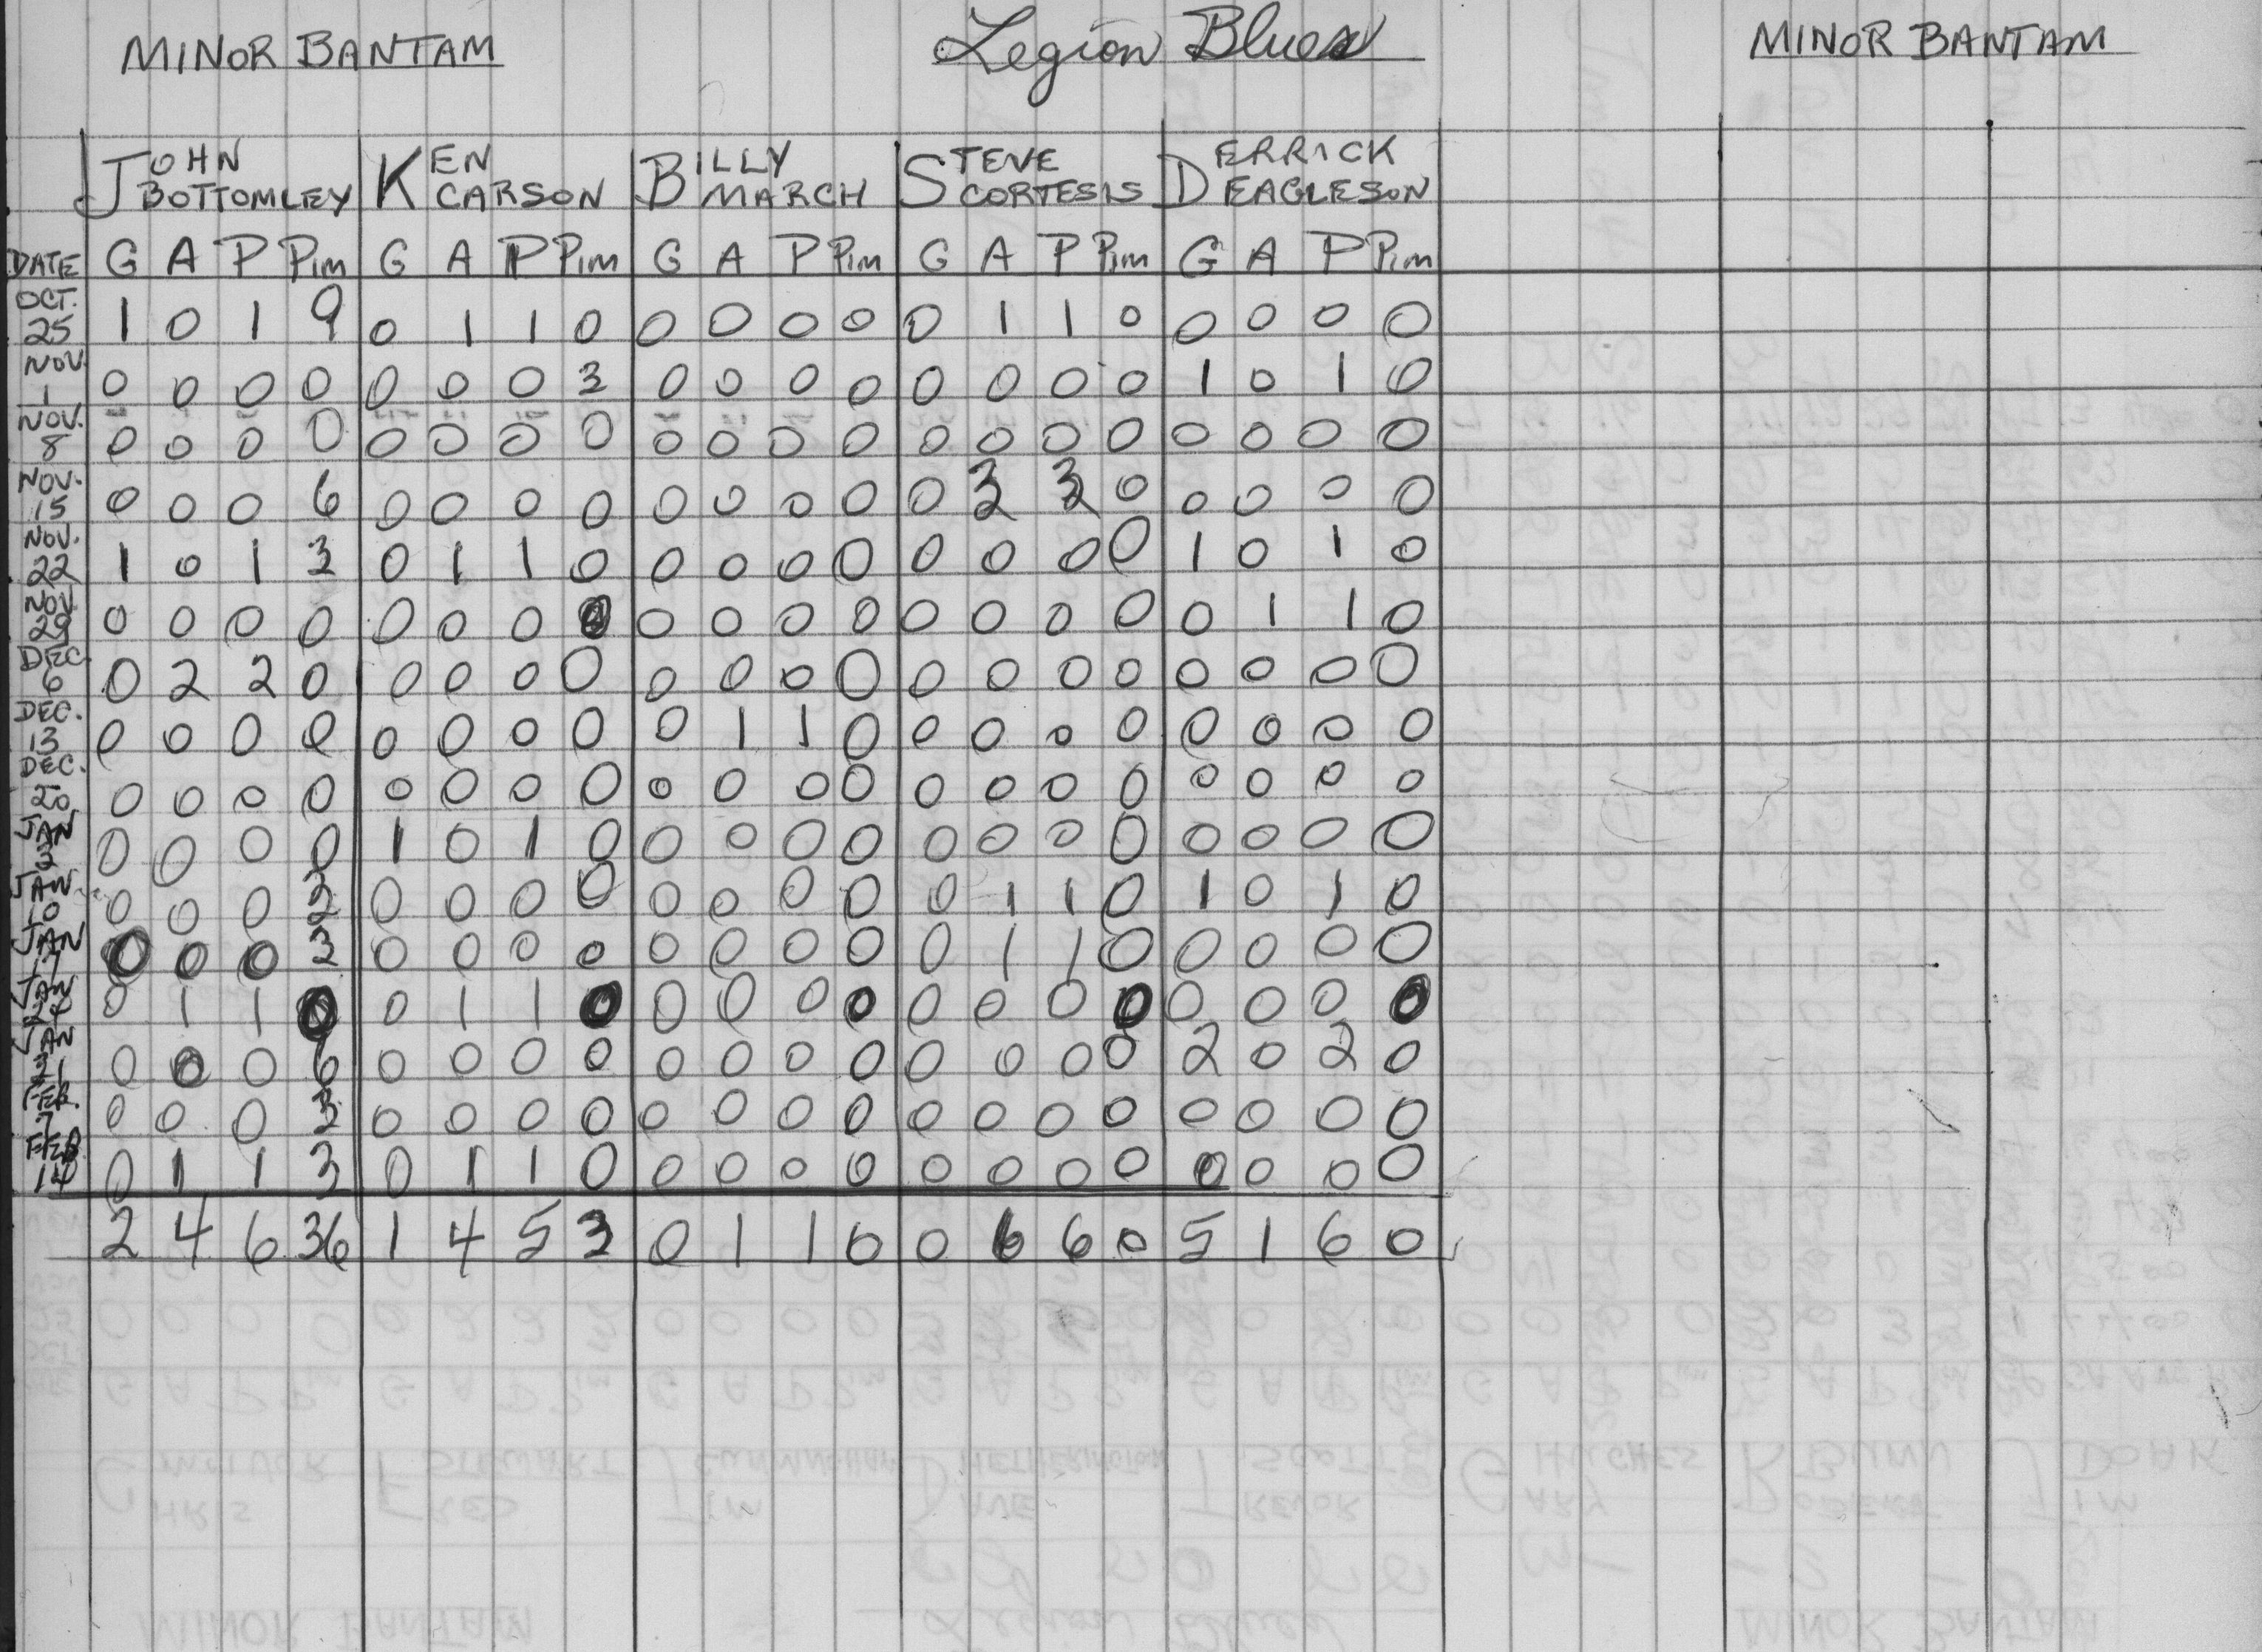 MINOR BANTAM Legion Blues MINOR BANTAM
JOHN KEN BILLY STEVE DERRICK
BOTTOMLEY CARSON MARCH CORTESIS EAGLESON
DATE G A P Pim G A P Pim G A P Pim G A P Pim G A P Pim
OCT. 25 1 0 1 9 0 1 1 0 0 0 0 0 0 1 1 0 0 0 0 0
NOV. 1 0 0 0 0 0 0 0 3 0 0 0 0 0 0 0 0 1 0 1 0
NOV. 8 0 0 0 0 0 0 0 0 0 0 0 0 0 0 0 0 0 0 0 0
NOV. 15 0 0 0 6 0 0 0 0 0 0 0 0 0 3 3 0 0 0 0 0
NOV. 22 1 0 1 3 0 1 1 0 0 0 0 0 0 0 0 0 1 0 1 0
NOV. 29 0 0 0 0 0 0 0 0 0 0 0 0 0 0 0 0 0 1 1 0
DEC. 6 0 2 2 0 0 0 0 0 0 0 0 0 0 0 0 0 0 0 0 0
DEC. 13 0 0 0 0 0 0 0 0 0 1 1 0 0 0 0 0 0 0 0 0
DEC. 20 0 0 0 0 0 0 0 0 0 0 0 0 0 0 0 0 0 0 0 0
JAN 3 0 0 0 0 1 0 1 0 0 0 0 0 0 0 0 0 0 0 0 0
JAN. 10 0 0 0 3 0 0 0 0 0 0 0 0 0 1 1 0 1 0 1 0
JAN 17 0 0 0 3 0 0 0 0 0 0 0 0 0 1 1 0 0 0 0 0
JAN 24 0 1 1 0 0 1 1 0 0 0 0 0 0 0 0 0 0 0 0 0
JAN 31 0 0 0 6 0 0 0 0 0 0 0 0 0 0 0 0 2 0 2 0
FEB. 7 0 0 0 3 0 0 0 0 0 0 0 0 0 0 0 0 0 0 0 0
FEB 14 0 1 1 3 0 1 1 0 0 0 0 0 0 0 0 0 0 0 0 0
2 4 6 36 1 4 5 3 0 1 1 0 0 6 6 0 5 1 6 0